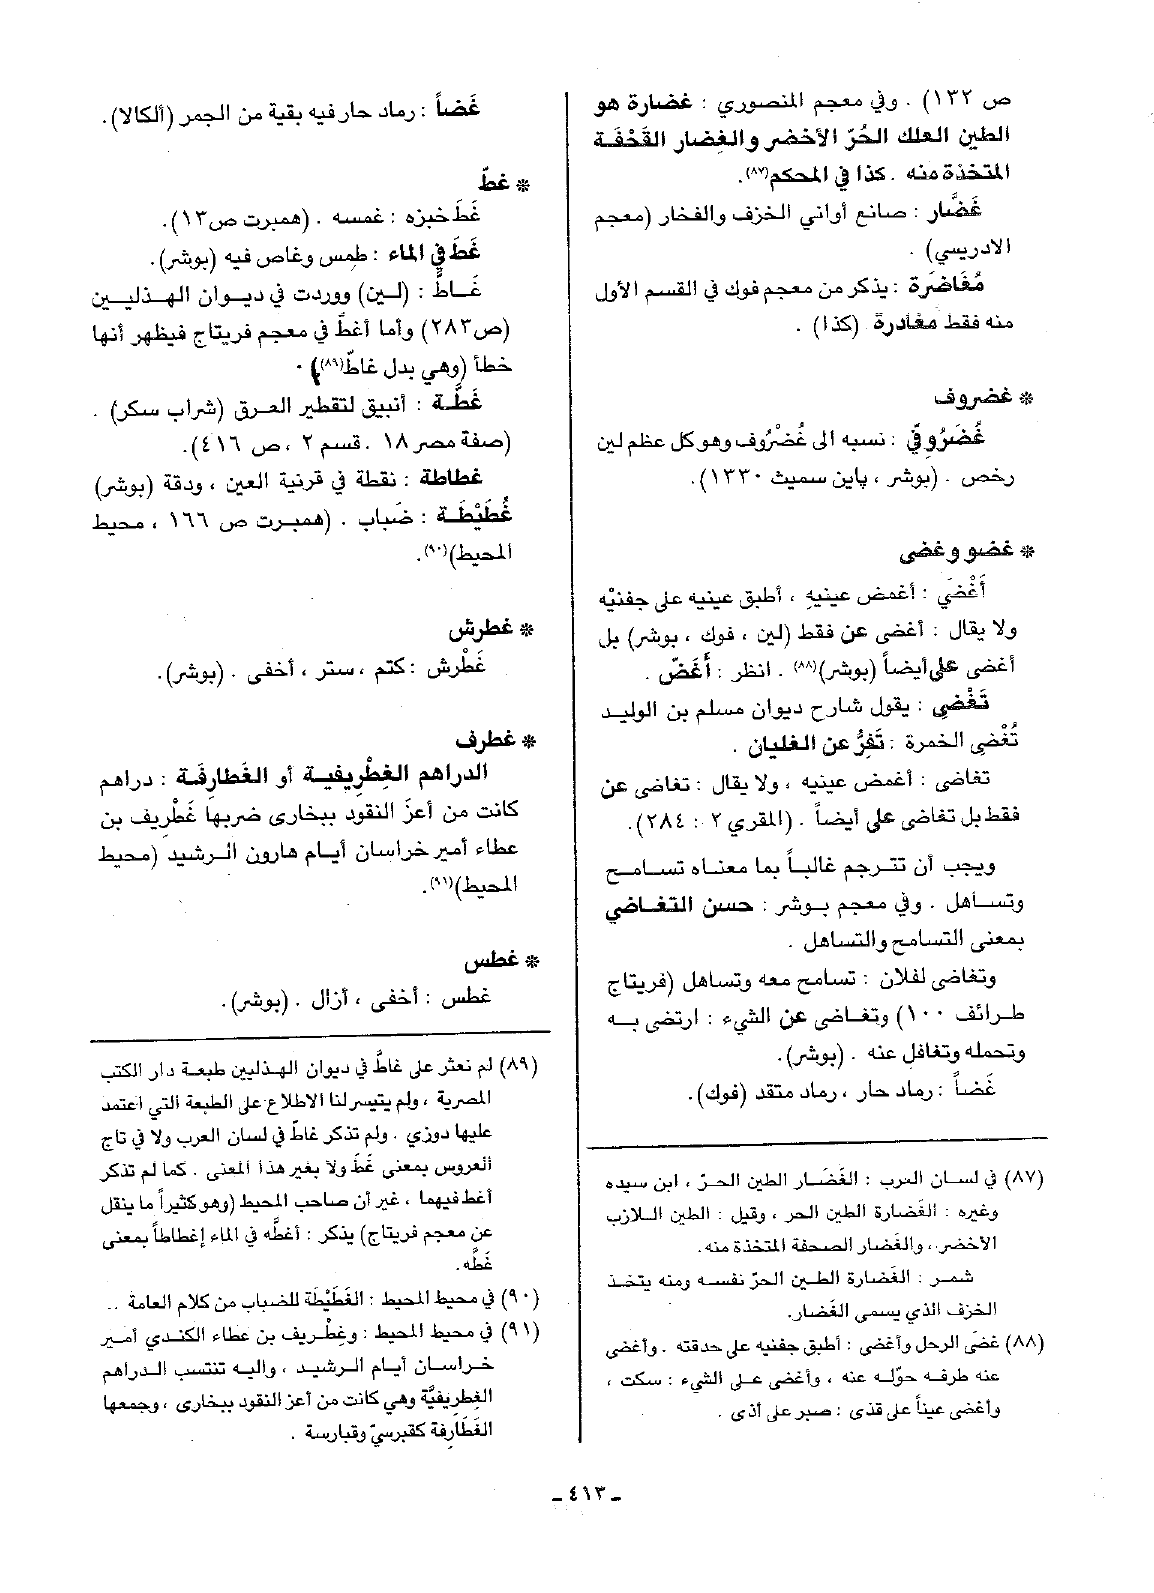 ص ١٣٢) . وفي معجم المنصوري : غضارة هو
الطين العلك الحُرّ الأخضر والغضار القَحْفَة
المتخذة منه . كذا في المحكم(٨٧).
غَضَّار : صانع أواني الخزف والفخار (معجم
الادريسي) .
مُغَاضَرَة : يذكر من معجم فوك في القسم الأول
منه فقط مغادرة (كذا) .
* غضروف
غُضْرُوفيّ : نسبه الى غُضْرُوف وهو كل عظم لين
رخص . (بوشر ، پاين سميث ١٣٣٠).
* غضو وغضى
أَغْضَى : أغمض عينيه ، أطبق عينيه على جفنيْه
ولا يقال : أغضى عن فقط (لين ، فوك ، بوشر) بل
أغضى على أيضاً (بوشر)(٨٨) . انظر : أَغَضّ .
تَغْضي : يقول شارح ديوان مسلم بن الوليد
تُغْضي الخمرة : تَفِرُّ عن الغليان .
تغاضى : أغمض عينيه ، ولا يقال : تغاضى عن
فقط بل تغاضى على أيضاً . (المقري ٢ : ٢٨٤).
ويجب أن تترجم غالباً بما معناه تسامح
وتساهل . وفي معجم بوشر : حسن التغاضي
بمعنى التسامح والتساهل .
وتغاضى لفلان : تسامح معه وتساهل (فريتاج
طرائف ١٠٠) وتغاضى عن الشيء : ارتضى به
وتحمله وتغافل عنه . (بوشر).
غَضاً : رماد حار ، رماد متقد (فوك).
(٨٧) في لسان العرب : الغَضَار الطين الحرّ ، ابن سيده
وغيره : الغَضارة الطين الحر ، وقيل : الطين اللازب
الاخضر ، والغَضار الصحفة المتخذة منه.
شمر : الغَضارة الطين الحرّ نفسه ومنه يتخذ
الخزف الذي يسمى الغَضار.
(٨٨) غضَى الرجل وأغضى : أطبق جفنيه على حدقته . وأغضى
عنه طرفه حوّله عنه ، وأغضى على الشيء : سكت ،
وأغضى عيناً على قذى : صبر على أذى .
غَضاً : رماد حار فيه بقية من الجمر (ألكالا).
* غطّ
غَطّ خبزه : غمسه . (همبرت ص١٣).
غَطّ في الماء : طمس وغاص فيه (بوشر).
غَاطّ : (لين) ووردت في ديوان الهذليين
(ص٢٨٣) وأما أغطّ في معجم فريتاج فيظهر أنها
خطأ (وهي بدل غاطّ(٨٩)) .
غَطَّة : أنبيق لتقطير العرق (شراب سكر) .
(صفة مصر ١٨ . قسم ٢ ، ص ٤١٦).
غطاطة : نقطة في قرنية العين ، ودقة (بوشر)
غُطَيْطَة : ضَباب . (همبرت ص ١٦٦ ، محيط
المحيط)(٩٠).
* غطرش
غَطْرش : كتم ، ستر ، أخفى . (بوشر).
* غطرف
الدراهم الغِطْرِيفية أو الغَطارفَة : دراهم
كانت من أعزّ النقود ببخارى ضربها غَطْريف بن
عطاء أمير خراسان أيام هارون الرشيد (محيط
المحيط)(٩١).
* غطس
غطس : أخفى ، أزال . (بوشر).
(٨٩) لم نعثر على غاطّ في ديوان الهذليين طبعة دار الكتب
المصرية ، ولم يتيسر لنا الاطلاع على الطبعة التي اعتمد
عليها دوزي . ولم تذكر غاطّ في لسان العرب ولا في تاج
العروس بمعنى غَطّ ولا بغير هذا المعنى . كما لم تذكر
أغط فيهما ، غير أن صاحب المحيط (وهو كثيراً ما ينقل
عن معجم فريتاج) يذكر : أغطَّه في الماء إغطاطاً بمعنى
غَطَّه.
(٩٠) في محيط المحيط : الغُطَيْطَة للضباب من كلام العامة ..
(٩١) في محيط المحيط : وغِطْريف بن عطاء الكندي أمير
خراسان أيام الرشيد ، واليه تنتسب الدراهم
الغِطريفيَّة وهي كانت من أعز النقود ببخارى ، وجمعها
الغَطَارِفة كقبرسيّ وقبارسة .
- ٤١٣ -